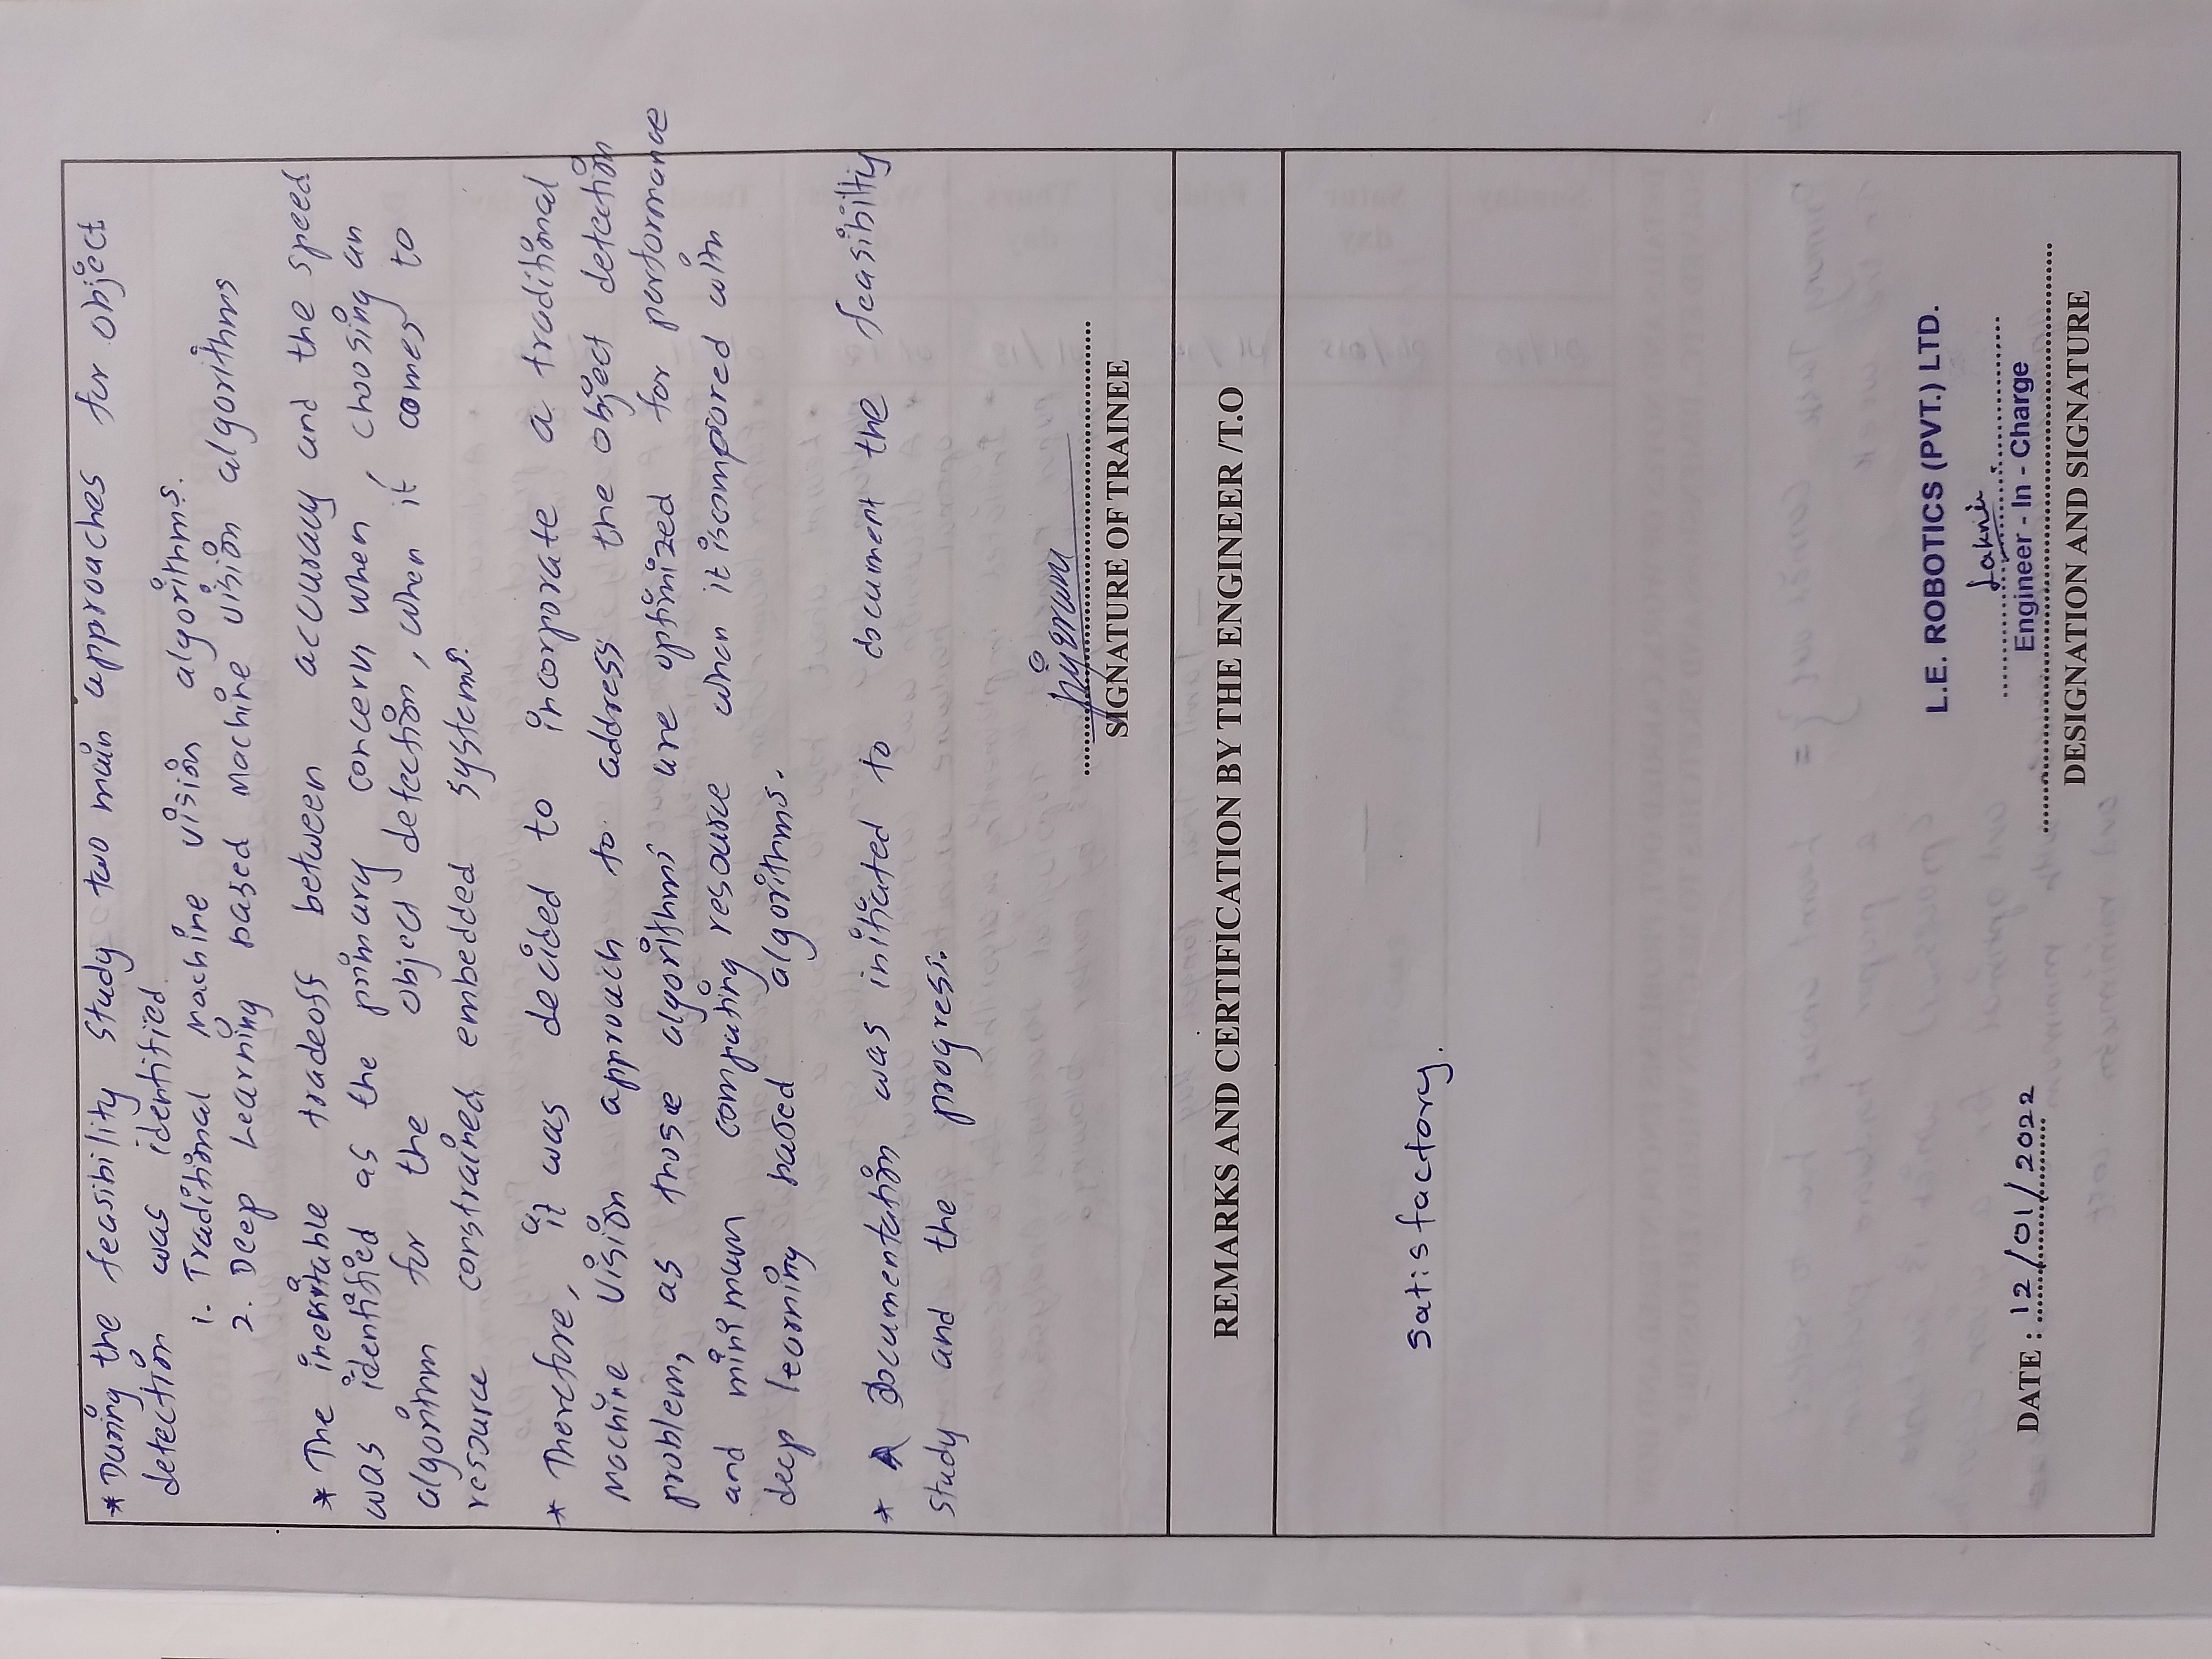 * During the feasibility study two main approaches for object
detection was identified.
1. Traditional Machine vision algorithms.
2. Deep Learning based Machine vision algorithms
* The inevitable tradeoff between accuracy and the speed
was identified as the primary concern when, choosing an
algorithm for the object detection, when it comes to
resource constrained embedded systems.
* Therefore, it was decided to incorporate a traditional
Machine Vision approach to address the object detection
problem, as those algorithms are optimized for performance
and minimum computing resource when it is compared with
deep learning based algorithms.
* A Documentation was initiated to document the feasibilty
study and the progress.
SIGNATURE OF TRAINEE
REMARKS AND CERTIFICATION BY THE ENGINEER /T.O
Satisfactory.
L.E. ROBOTICS (PVT.) LTD.
Engineer - In - Charge
DATE : 12/01/2022
DESIGNATION AND SIGNATURE